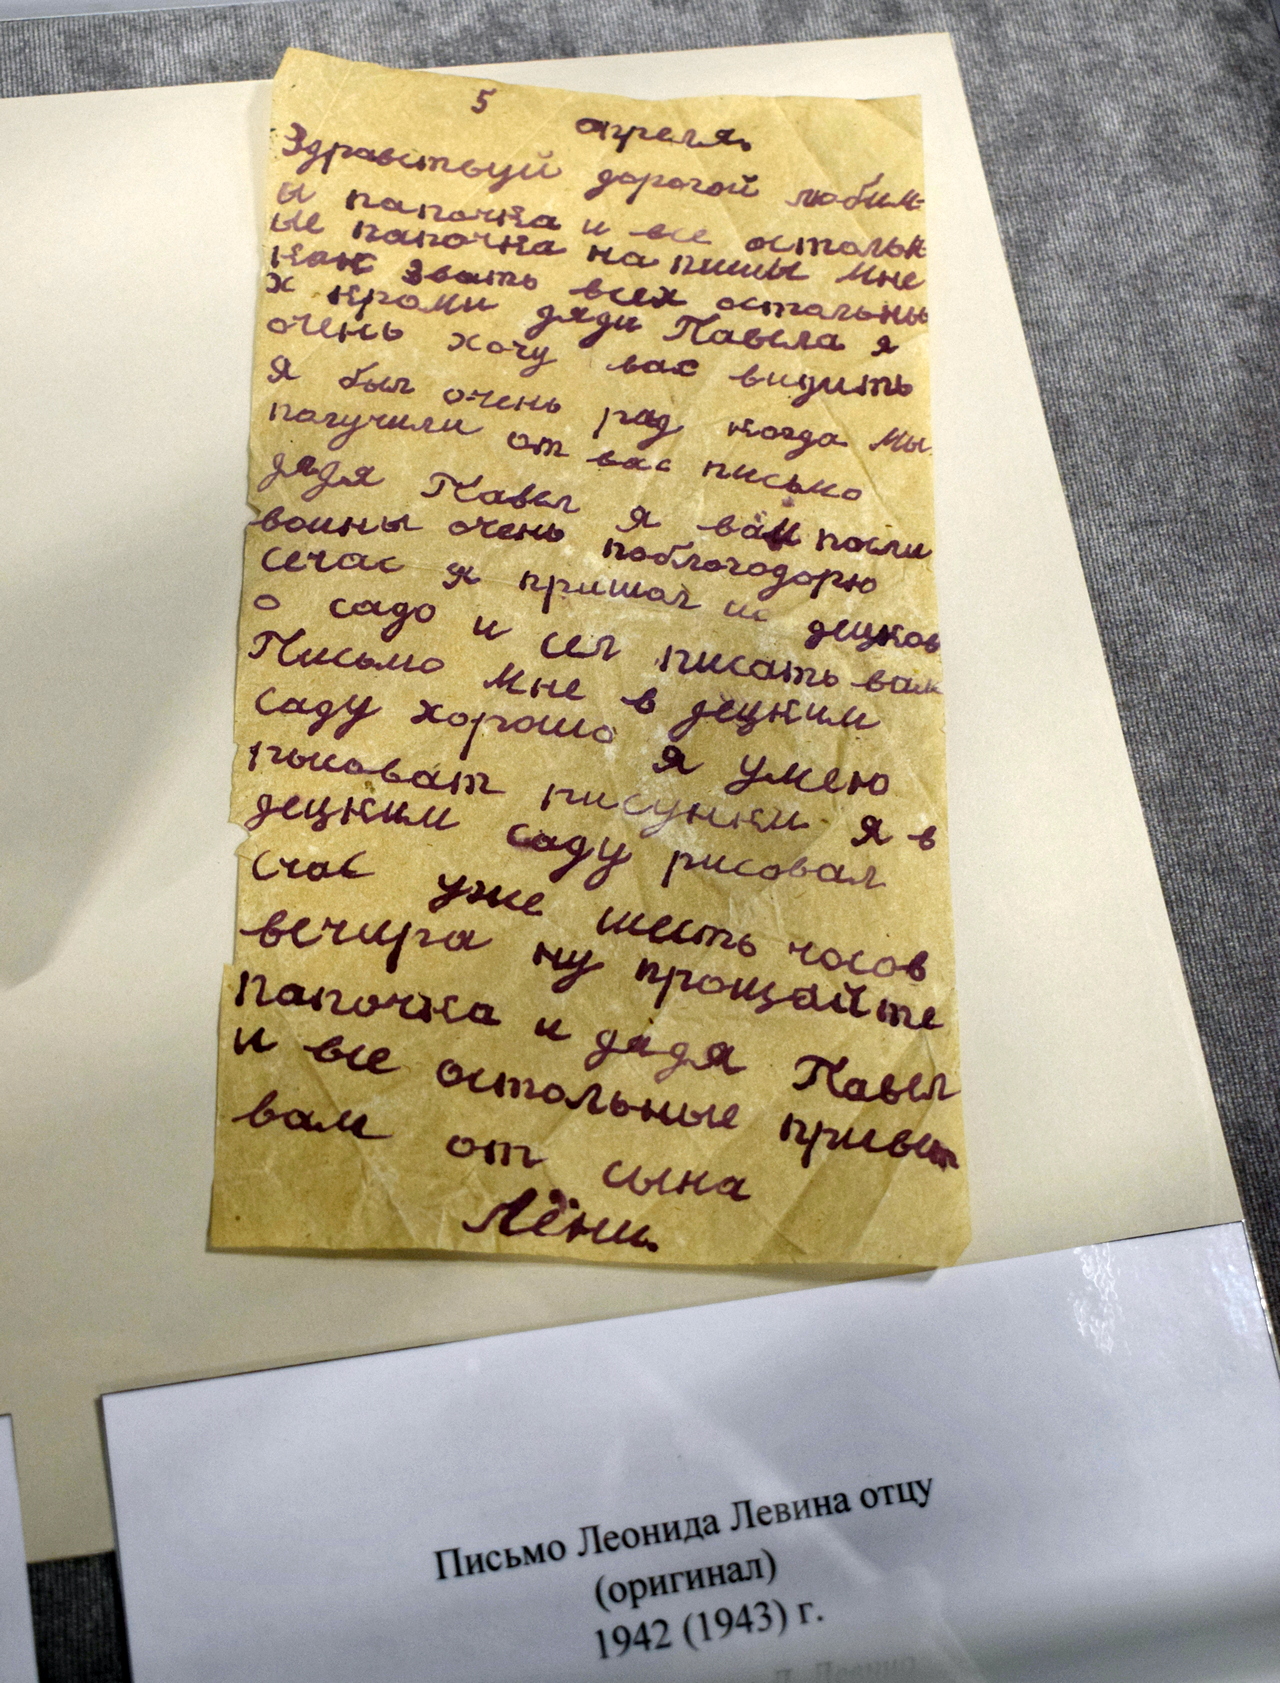 5 апреля.
Здравствуй дорогой любим-
ы папочка и все остольн
ые папочка на пишы мне
как звать всех остальны
х кроми дяди Павела я
очень хочу вас видить
я был очень рад когда мы
получили от вас письмо
дядя Павел я вам посли
воины очень поблогодорю
сечас я пришол ис децков
о садо и сел писать вам
Письмо мне в децким
саду хорошо я умею
рисоват рисунки я в
децким саду рисовал
счас уже шесть часов
вечира ну прощайте
папочка и дядя Павел
и все остольные привет
вам от сына
Лёни.
Письмо Леонида Левина отцу
(оригинал)
1942 (1943) г.